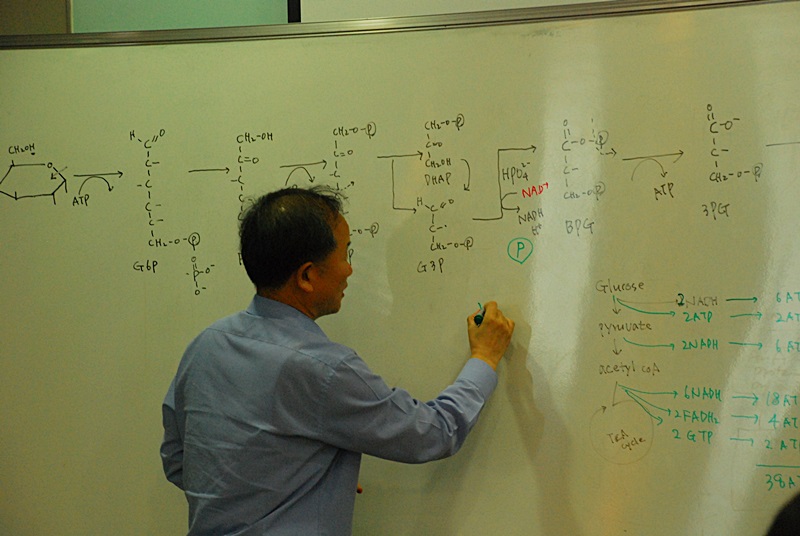 CH2OH
O
ATP
H
O
C
C-
-C
C-
C-
CH2-O-P
G6P
O
-P-O-
O-
CH2-OH
C=O
CH2-O-P
C=O
CH2-O-P
C=O
CH2OH
DHAP
H
C=O
C-
CH2-O-P
G3P
HPO4 2-
NAD+
NADH
H+
P
O
C-O-P
C-
CH2-O-P
BPG
ATP
O
C-O-
C-
CH2-O-P
3PG
Glucose
2NADH → 6 AT
2ATP → 2 AT
pyruvate
2NADH → 6 AT
acetyl coA
6NADH → 18 AT
2FADH2 → 4 AT
2 GTP → 2 AT
TCA
cycle
38 A